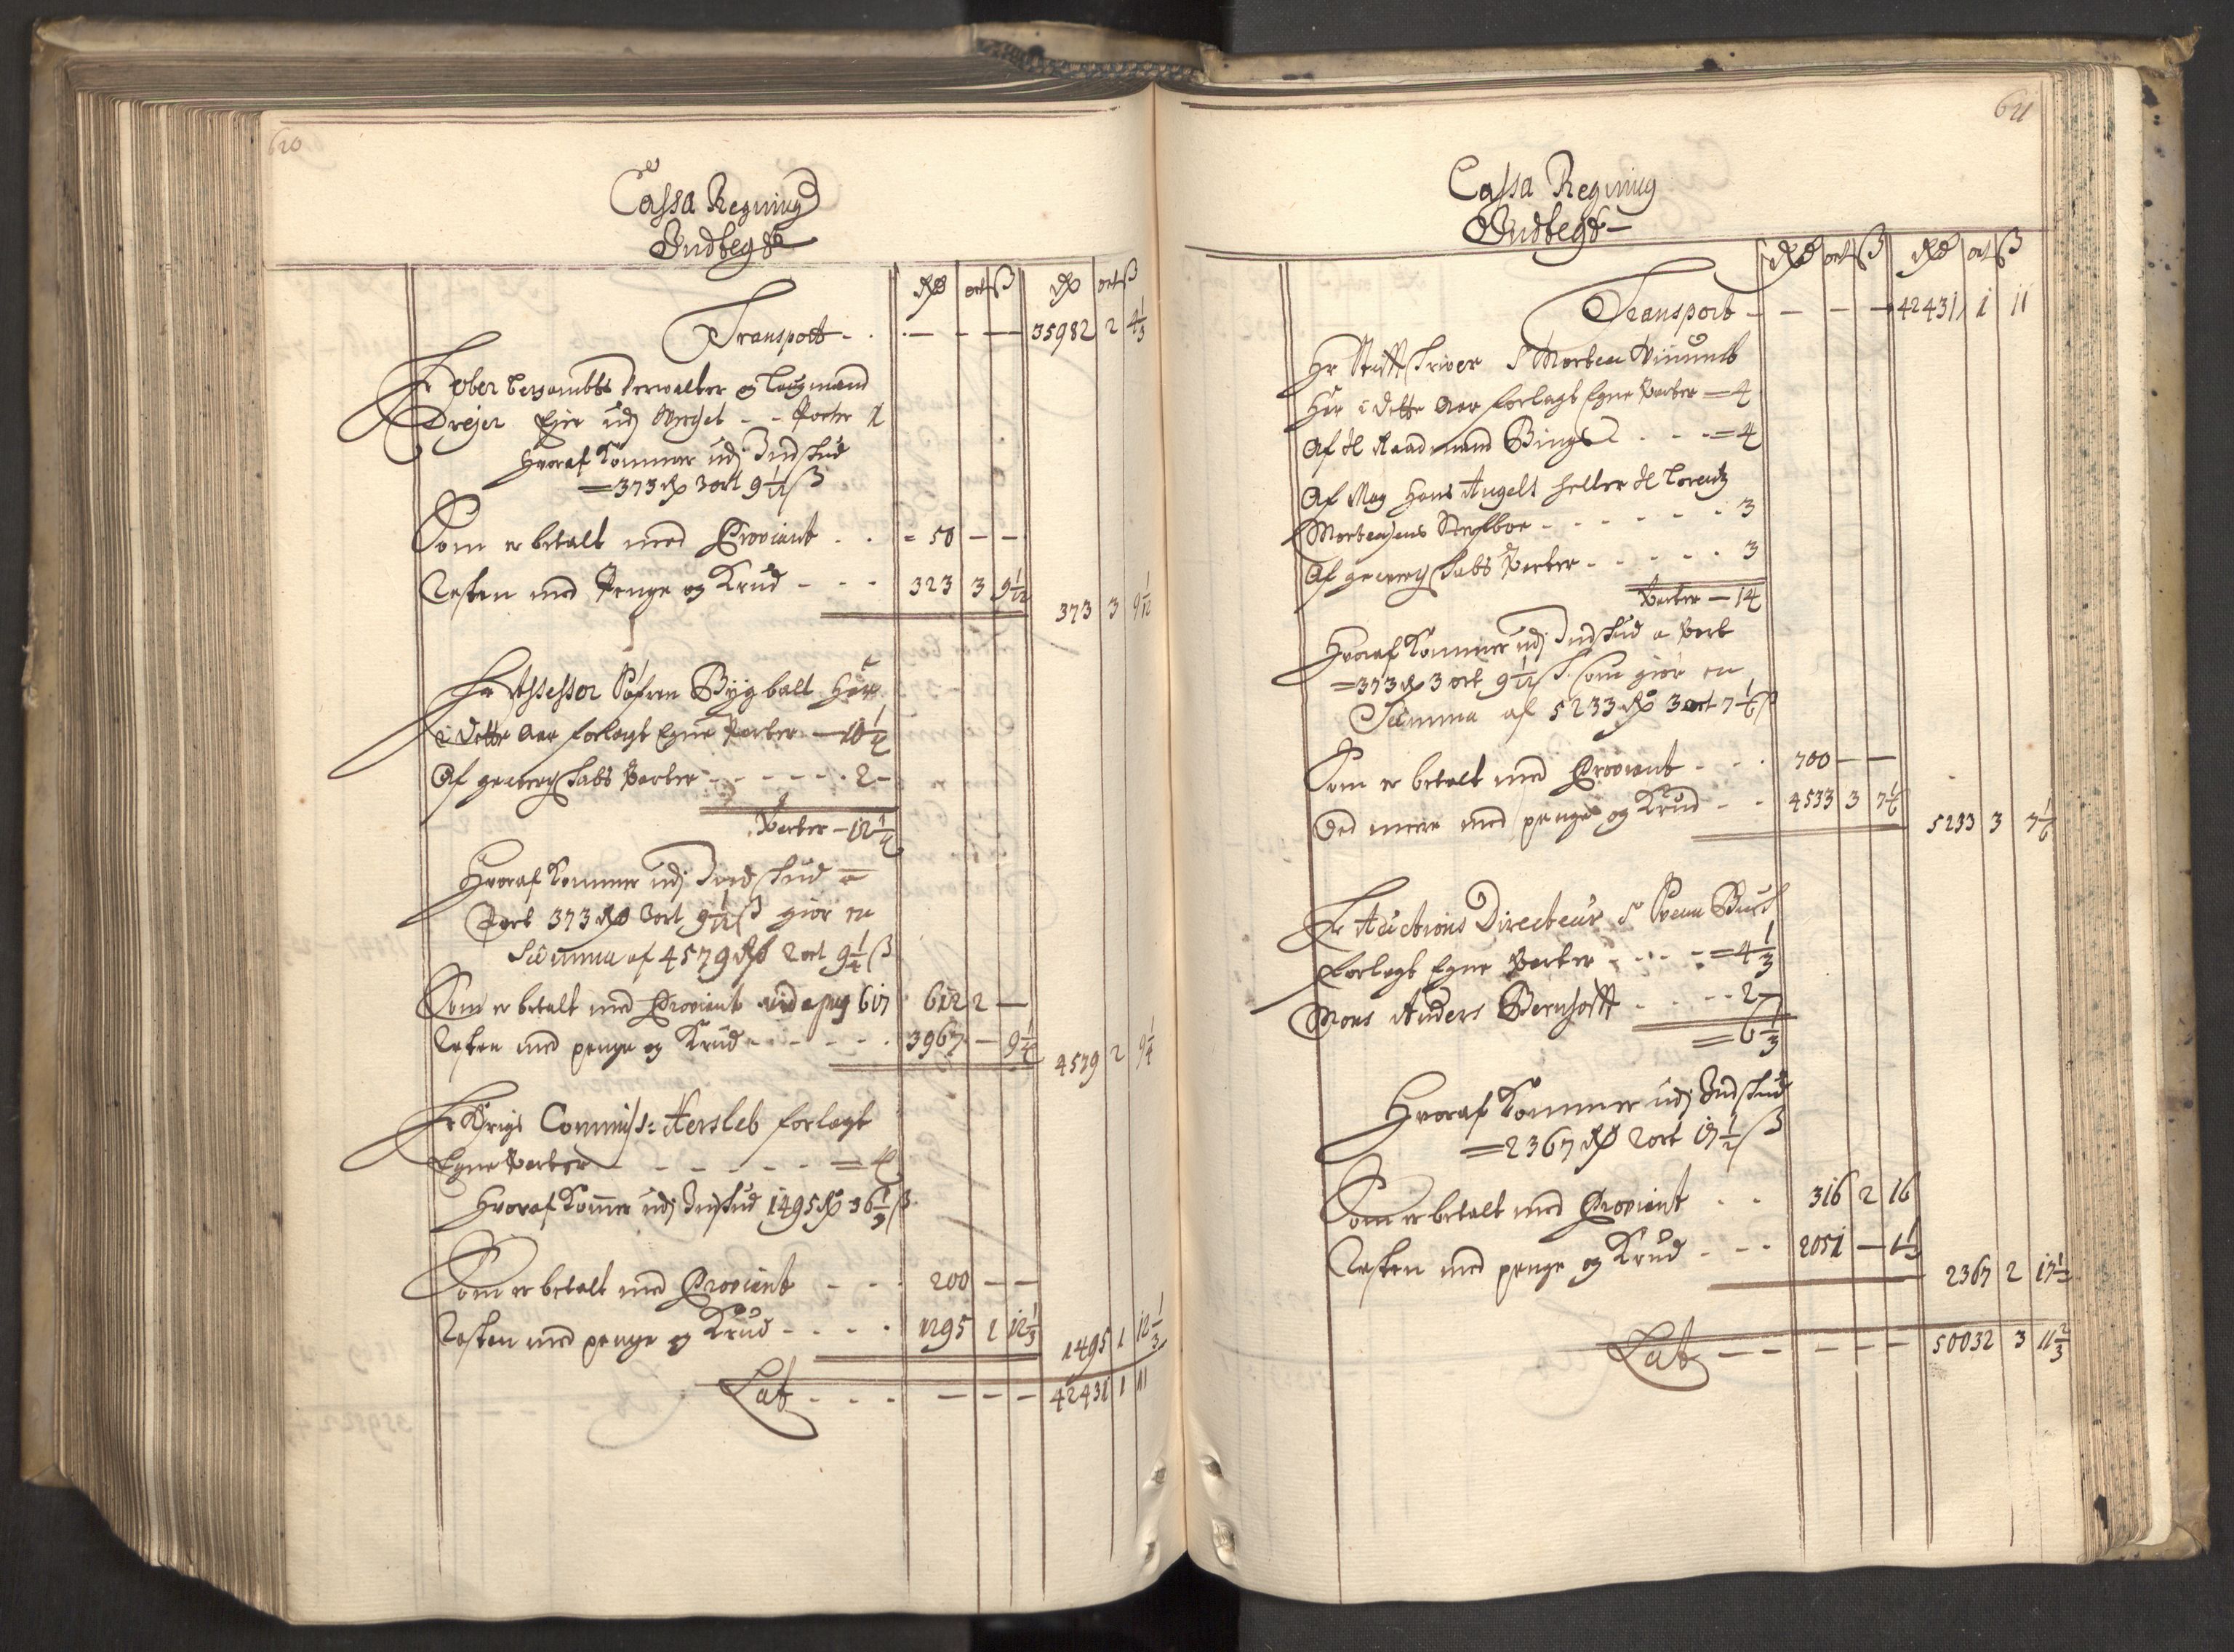 620
Cassa Regning
Indtegt
Rd ort ß Rd ort ß
Transport - - - - 35982 2 4 1/3
Hr Ober berg ambts Verwalter og Laugmand
Drejer Ejer udj Verchet - - Parter 1
Hvoraf Kommer udj Indskud
= 373 Rd 3 ort 9 1/12 ß
Som er betalt med Proviant - - = 50 - -
Resten med Penge og Krud - - - 323 3 9 1/12
373 3 9 1/12
Hr Assessor Søfren Bygball Har
i dette Aar forlagt Egne Parter - 10 1/4
Af gewerchskabs Parter - - - - - 2 -
Parter - 12 1/4
Hvoraf Kommer udj Indskud a
Part 373 Rd 3 ort 9 1/12 ß giør en
Summa af 4579 Rd 2 ort 9 1/4 ß
Som er betalt med Proviant vide pag 617 612 2 -
Resten med penge og Krud - - - - - 3967 - 9 1/4
4579 2 9 1/4
Hr Krigs Commiss: Hersleb forlagt
Egne Parter - - - - - - = 4
Hvoraf Komer udj Indskud 1495 Rd 36 1/3 ß
Som er betalt med Proviant - - - 200 - -
Resten med penge og Krud - - - - 1295 1 12 1/3
1495 1 12 1/3
Lat - - - - - - 42431 1 11
621
Cassa Regning
Indtegt
Rd ort ß Rd ort ß
Transport - - - - 42431 1 11
Hr Stifftskriver Sr Morten
Har i dette Aar forlagt Egne Parter = 4
Af Sl Raadmand Bings - - - = 4
Af Mag Hans Angels heller Sl Lorentz
Mortensens Sterfboe - - - - - - 3
Af gewerchskabs Parter - - - - - 3
Parter - 14
Hvoraf Kommer udj Indskud a Part
= 373 Rd 3 ort 9 1/12 ß som giør en
Summa af 5233 Rd 3 ort 7 1/6 ß
Som er betalt med Proviant - - - 700 - -
Ded meere med penge og Krud - - 4533 3 7 1/6
5233 3 7 1/6
Hr Auctions Directeur Sr Svenn Busch
forlagt Egne Parter - - - - = 4 1/3
Mons Anders Bernhofft - - - - 2 -
= 6 1/3
Hvoraf Kommer udj Indskud
= 2367 Rd 2 ort 17 1/2 ß
Som er betalt med Proviant - - 316 2 16
Resten med penge og Krud - - - 2051 - 1 1/3
2367 2 17 1/3
Lat - - - - - 50032 3 11 2/3